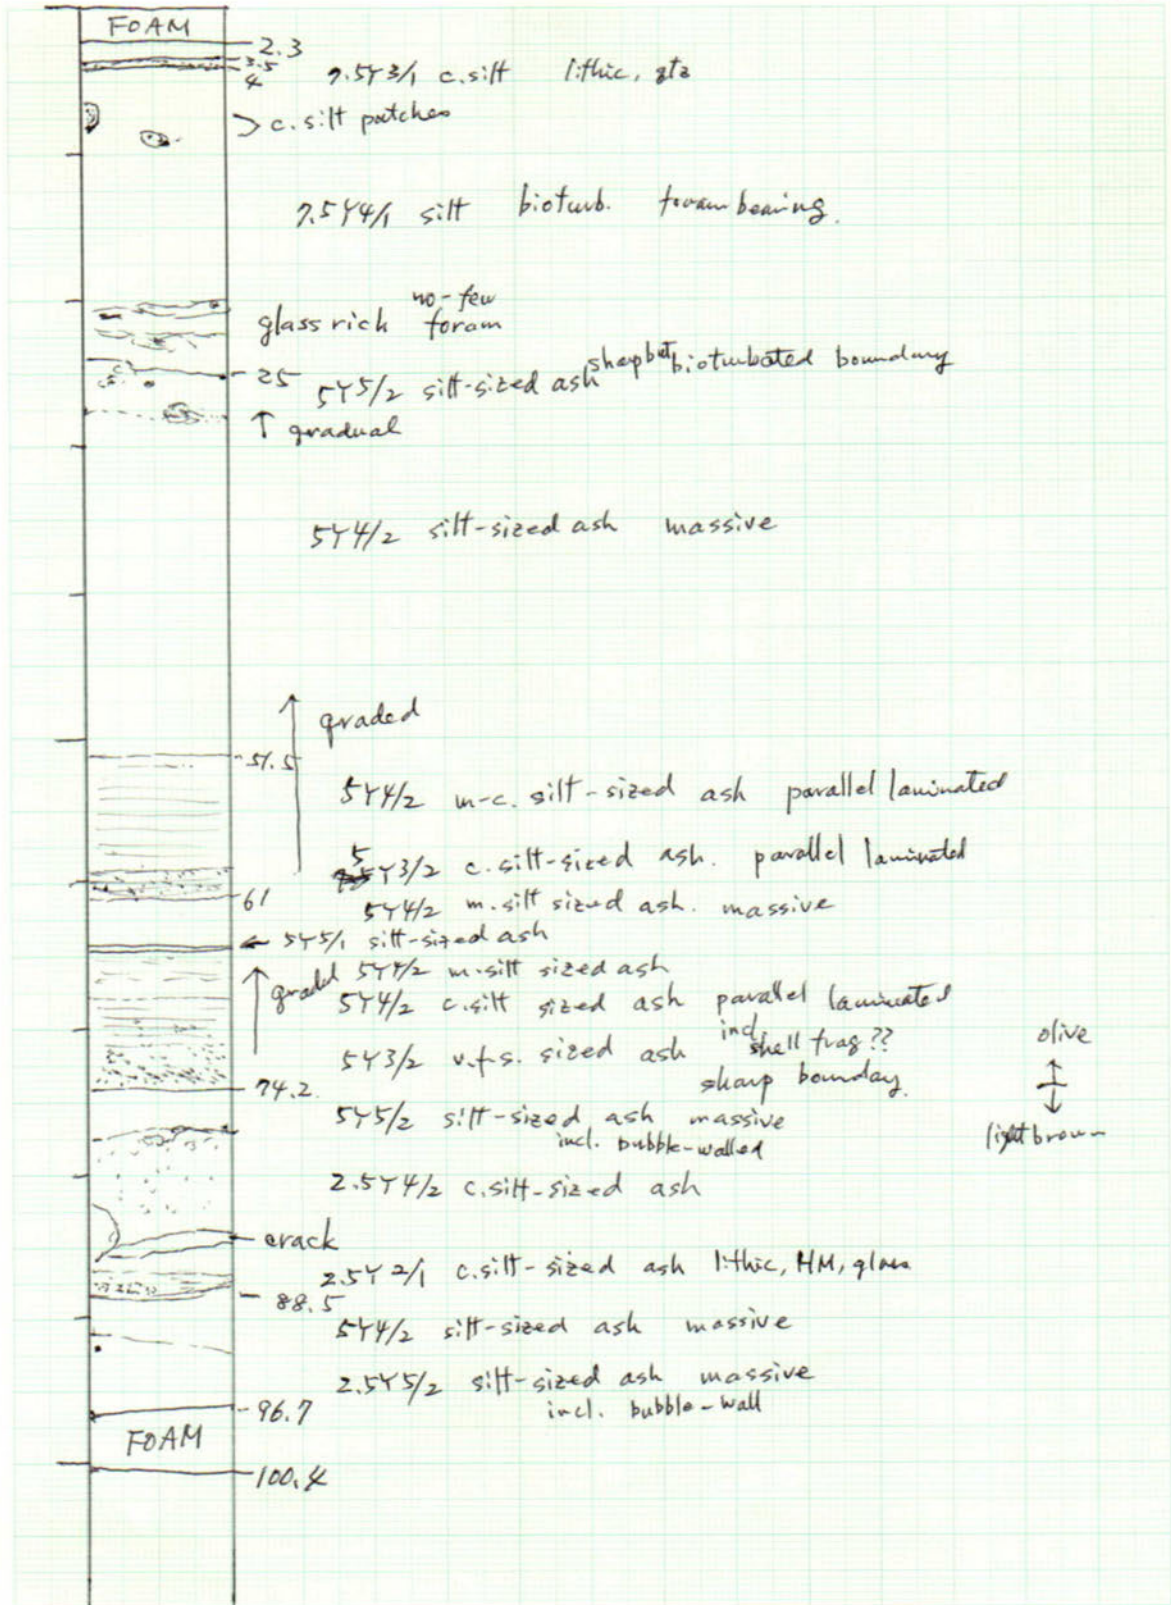 FOAM
2.3
3.5
4
7.5Y3/1 c.silt lithic, qtz
c. silt patches
7.5Y4/1 silt bioturb. foram bearing.
no-few
glass rich foram
25 5Y5/2 silt-sized ash sharp but bioturbated boundary
↑ gradual
5Y4/2 silt-sized ash massive
graded
51.5
5Y4/2 m-c. silt-sized ash parallel laminated
5Y3/2 c.silt-sized ash. parallel laminated
61
5Y4/2 m.silt sized ash. massive
← 5Y5/1 silt-sized ash
graded 5Y4/2 m.silt sized ash
5Y4/2 c.silt sized ash parallel laminated
5Y3/2 v.f.s. sized ash incl shell frag??
olive
sharp bounday.
74.2
5Y5/2 silt-sized ash massive
incl. bubble-walled
light brown
2.5Y4/2 c.silt-sized ash
crack
2.5Y2/1 c.silt-sized ash lithic, HM, glass
88.5
5Y4/2 silt-sized ash massive
2.5Y5/2 silt-sized ash massive
incl. bubble-wall
96.7
FOAM
100.4